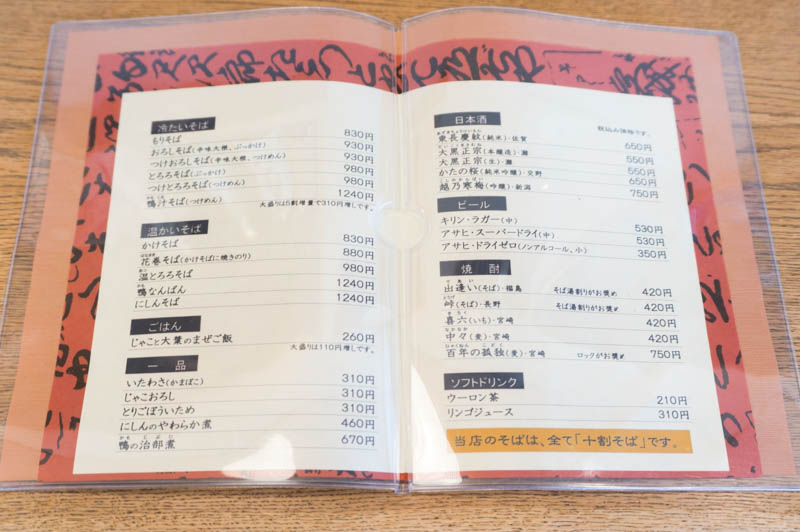 冷たいそば
もりそば 830円
おろしそば(辛味大根、ぶっかけ) 930円
つけおろしそば(辛味大根、つけめん) 930円
とろろそば(ぶっかけ) 980円
つけとろろそば(つけめん) 980円
鴨汁そば(つけめん) 1240円
大盛りは5割増量で310円増しです。
温かいそば
かけそば 830円
花巻そば(かけそばに焼きのり) 880円
温とろろそば 980円
鴨なんばん 1240円
にしんそば 1240円
ごはん
じゃこと大葉のまぜご飯 260円
大盛りは110円増しです。
一品
いたわさ(かまぼこ) 310円
じゃこおろし 310円
とりごぼういため 310円
にしんのやわらか煮 460円
鴨の治部煮 670円
日本酒
税込み価格です。
東長慶紋(純米)・佐賀 650円
大黒正宗(本醸造)・灘 550円
大黒正宗(生)・灘 550円
かたの桜(純米吟醸)・交野 650円
越乃寒梅(吟醸)・新潟 750円
ビール
キリン・ラガー(中)
アサヒ・スーパードライ(中) 530円
530円
アサヒ・ドライゼロ(ノンアルコール、小) 350円
焼酎
出逢い(そば)・福島 そば湯割りがお奨め 420円
峠(そば)・長野 そば湯割りがお奨め 420円
喜六(いも)・宮崎 420円
中々(麦)・宮崎 420円
百年の孤独(麦)・宮崎 ロックがお奨め 750円
ソフトドリンク
ウーロン茶 210円
リンゴジュース 310円
当店のそばは、全て「十割そば」です。